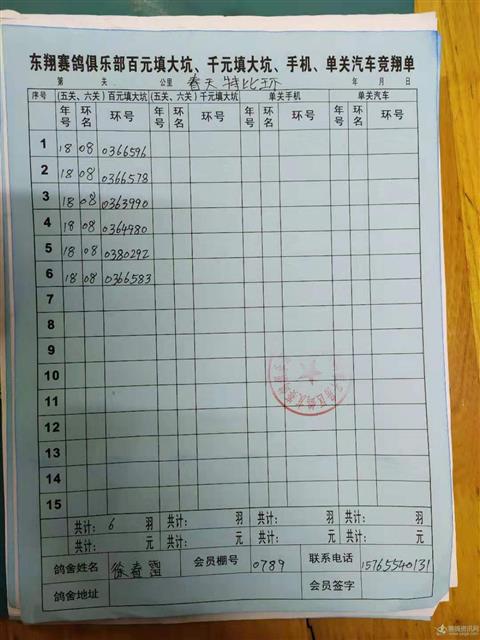 东翔赛鸽俱乐部百元填大坑、千元填大坑、手机、单关汽车竞翔单
第 关 公里 春天特比环 年 月 日
序号 (五关、六关)百元填大坑 (五关、六关)千元填大坑 单关手机 单关汽车
年号 环名 环号 年号 环名 环号 年号 环名 环号 年号 环名 环号
1 18 08 0366596
2 18 08 0366578
3 18 08 0363990
4 18 08 0364980
5 18 08 0380292
6 18 08 0366583
7
8
9
10
11
12
13
14
15
共计: 6 羽 共计: 羽 共计: 羽 共计: 羽
共计: 元 共计: 元 共计: 元 共计: 元
鸽舍姓名 徐春雷 会员棚号 0789 联系电话 15765540131
鸽舍地址 会员签字